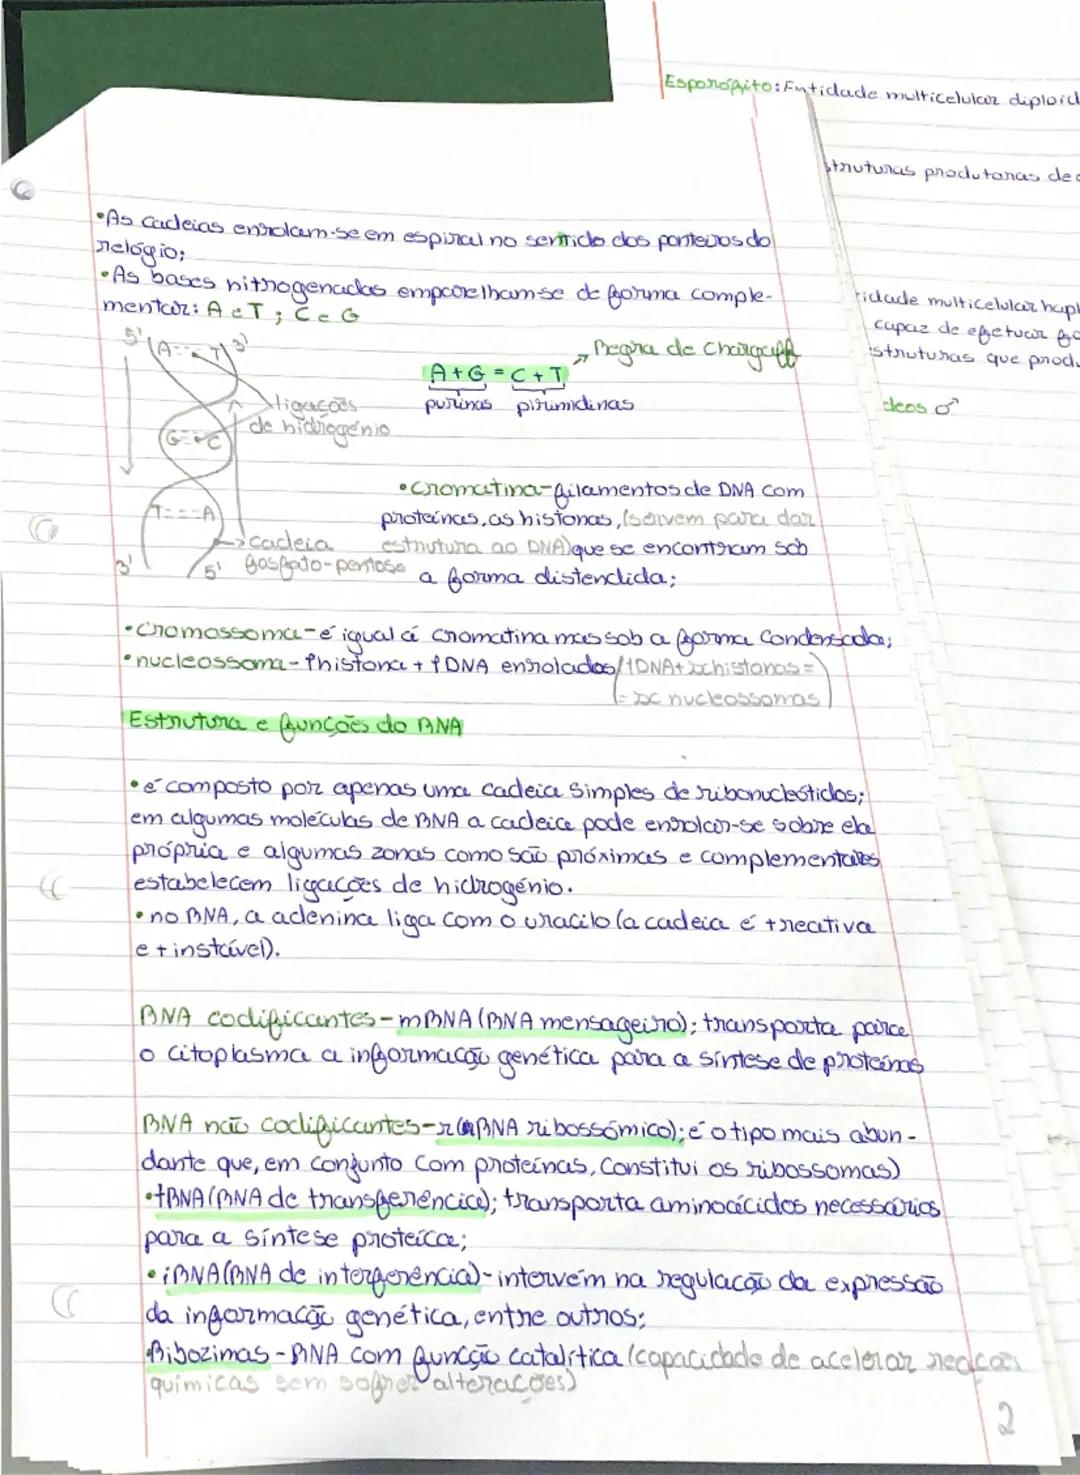 Esporófito: Entidade multicelular diploid
struturas produtoras de
•As cadeias enrolam-se em espiral no sentido dos ponteiros do
relógio;
•As bases nitrogenadas emparelham-se de forma comple-
mentar: A e T; C e G
idade multicelular hapl
capaz de efetuar fo
struturas que prod
ideos ♂
5' A T 3'
Regra de Chargaff
A+G = C+T
purinas pirimidinas
ligações
de hidrogénio
G C
T A
•Cromatina-filamentos de DNA com
proteínas, as histonas, (servem para dar
estrutura ao DNA) que se encontram sob
a forma distendida;
cadeia
fosfato-pentose
3' 5'
•Cromossoma-é igual á cromatina mas sob a forma condensada;
•nucleossoma-1 histona + 1 DNA enrolados (1DNA+xhistonas=
=x nucleossomas)
Estrutura e funções do RNA
•é composto por apenas uma cadeia simples de ribonucleótidos;
em algumas moléculas de RNA a cadeia pode enrolar-se sobre ela
própria e algumas zonas como são próximas e complementares
estabelecem ligações de hidrogénio.
•no RNA, a adenina liga com o uracilo (a cadeia é +reativa
e + instável).
RNA codificantes-mRNA (RNA mensageiro); transporta para
o citoplasma a informação genética para a síntese de proteínas
RNA não codificantes-r(RNA ribossómico); é o tipo mais abun-
dante que, em conjunto com proteínas, constitui os ribossomas)
•tRNA (RNA de transferência); transporta aminoácidos necessários
para a síntese proteíca;
•iRNA (RNA de interferência)-intervém na regulação da expressão
da informação genética, entre outros;
•Ribozimas-RNA com função catalítica (capacidade de acelerar reações
químicas sem sofrer alterações)
2